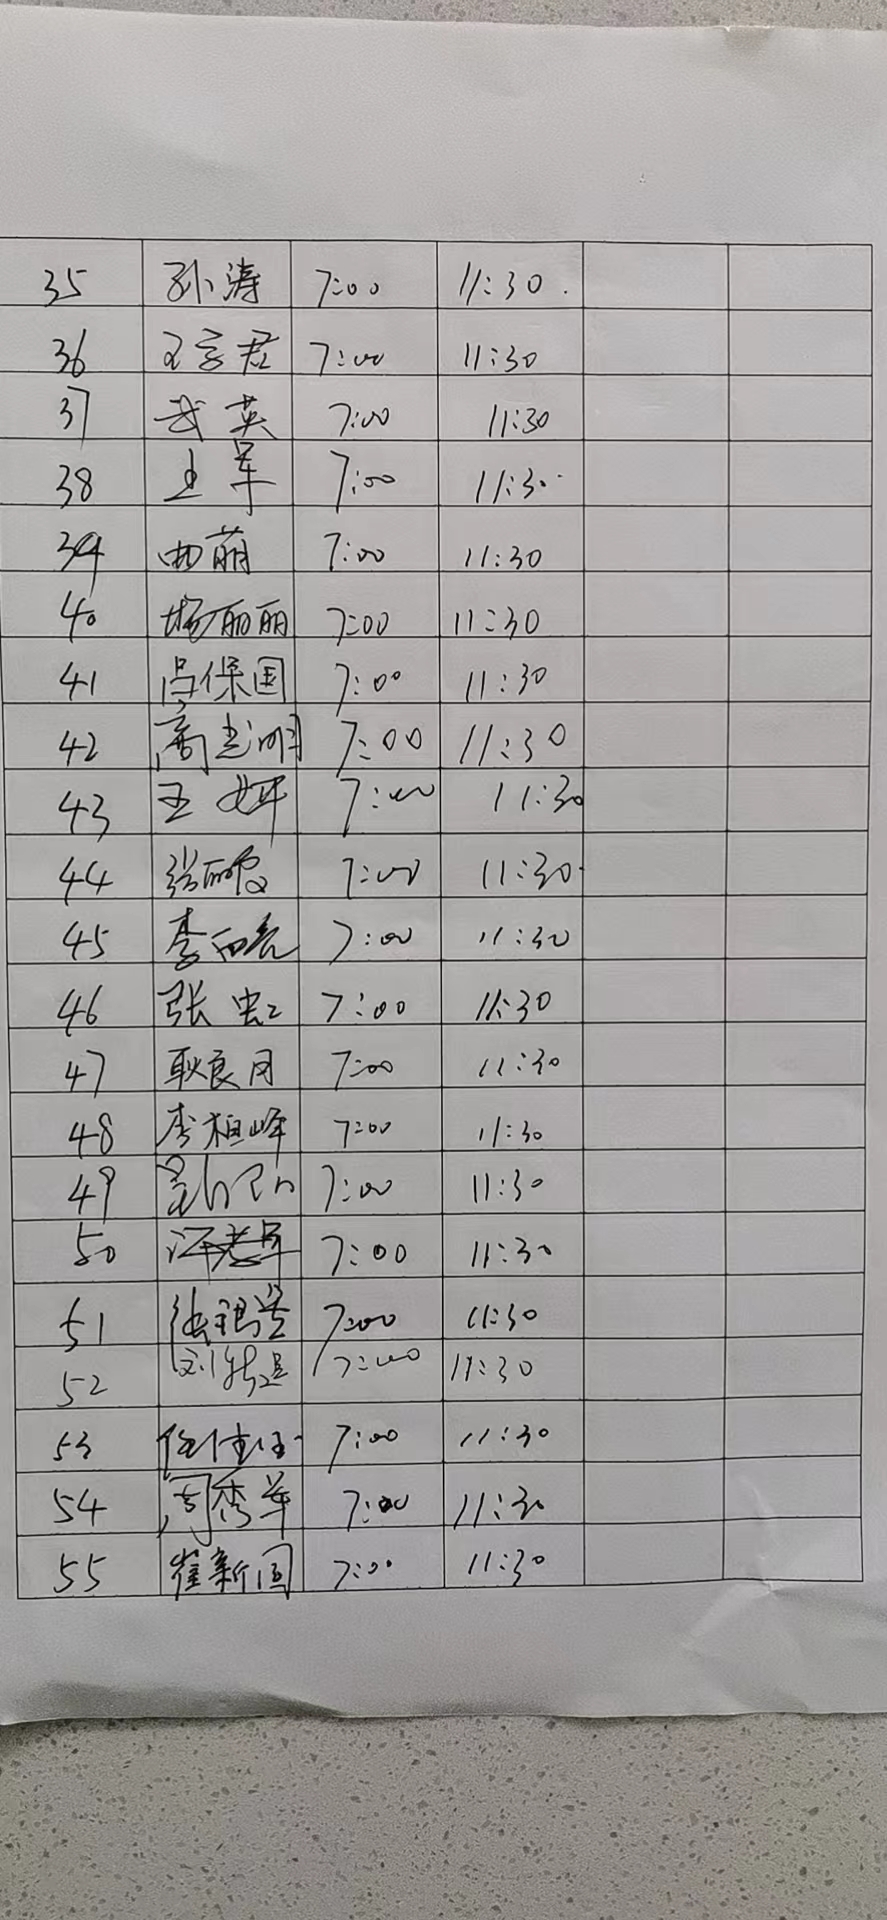 35 孙涛 7:00 11:30
36 7:00 11:30
37 武英 7:00 11:30
38 王军 7:00 11:30
39 曲萌 7:00 11:30
40 杨丽丽 7:00 11:30
41 吕保国 7:00 11:30
42 高志明 7:00 11:30
43 王妍 7:00 11:30
44 张丽霞 7:00 11:30
45 李 7:00 11:30
46 张虹 7:00 11:30
47 耿良月 7:00 11:30
48 李桓峰 7:00 11:30
49 7:00 11:30
50 7:00 11:30
51 7:00 11:30
52 刘 7:00 11:30
53 任佳 7:00 11:30
54 周秀革 7:00 11:30
55 崔新国 7:00 11:30